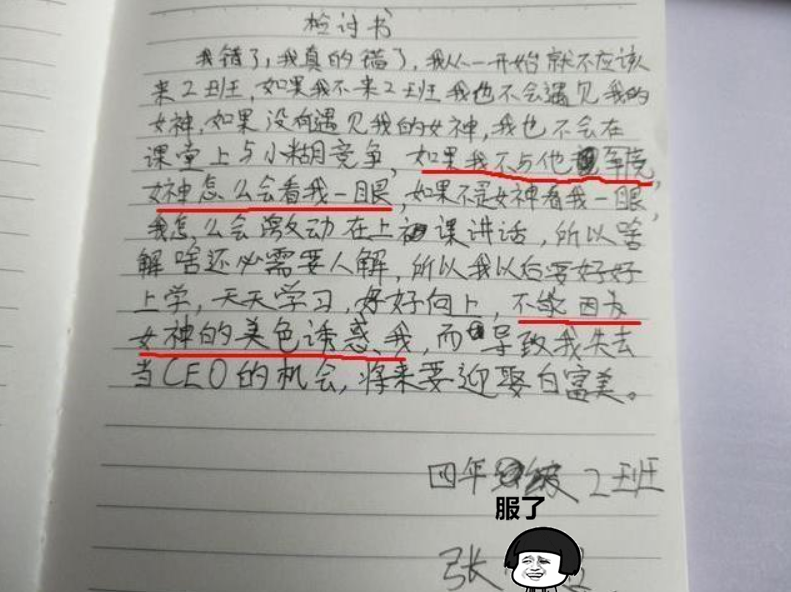 检讨书
我错了,我真的错了,我从一开始就不应该
来2班,如果我不来2班我也不会遇见我的
女神,如果没有遇见我的女神,我也不会在
课堂上与小糊竞争,如果我不与他争竞,
女神怎么会看我一眼,如果不是女神看我一眼,
我怎么会激动在上课讲话,所以啥
解啥还必需要人解,所以我以后要好好
上学,天天学习,好好向上,不能因为
女神的美色诱惑我,而导致我失去
当CEO的机会,将来要迎娶白富美。
四年级2班
服了
张